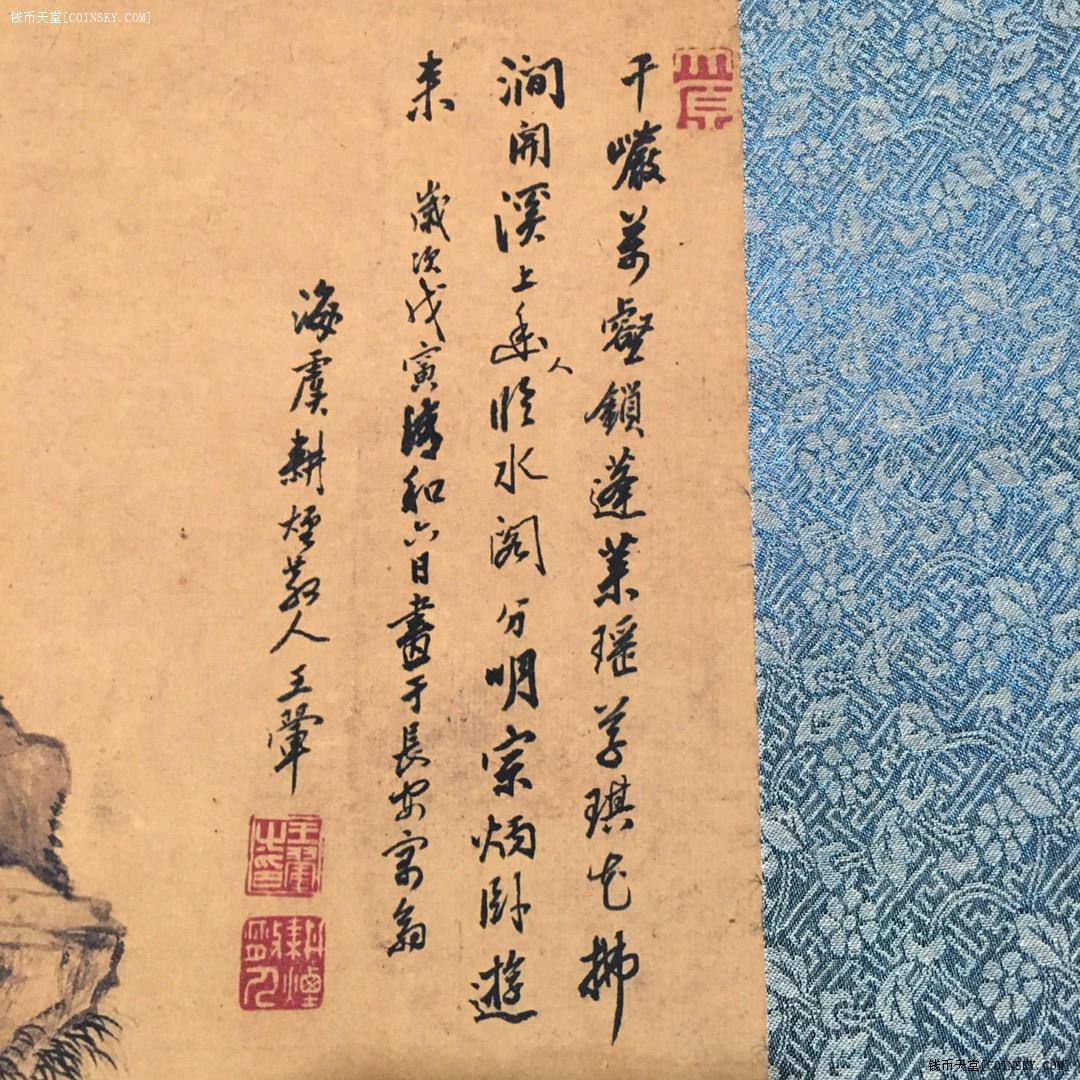 钱币天堂[COINSKY.COM]
千巖萬壑鎖蓬萊瑤草琪花拂
澗開溪上幽人臨水閣分明宗炳臥遊
來 歲次戊寅清和六日畫于長安
海虞耕煙散人王翬
王翬之印
耕煙散人
钱币天堂[COINSKY.COM]